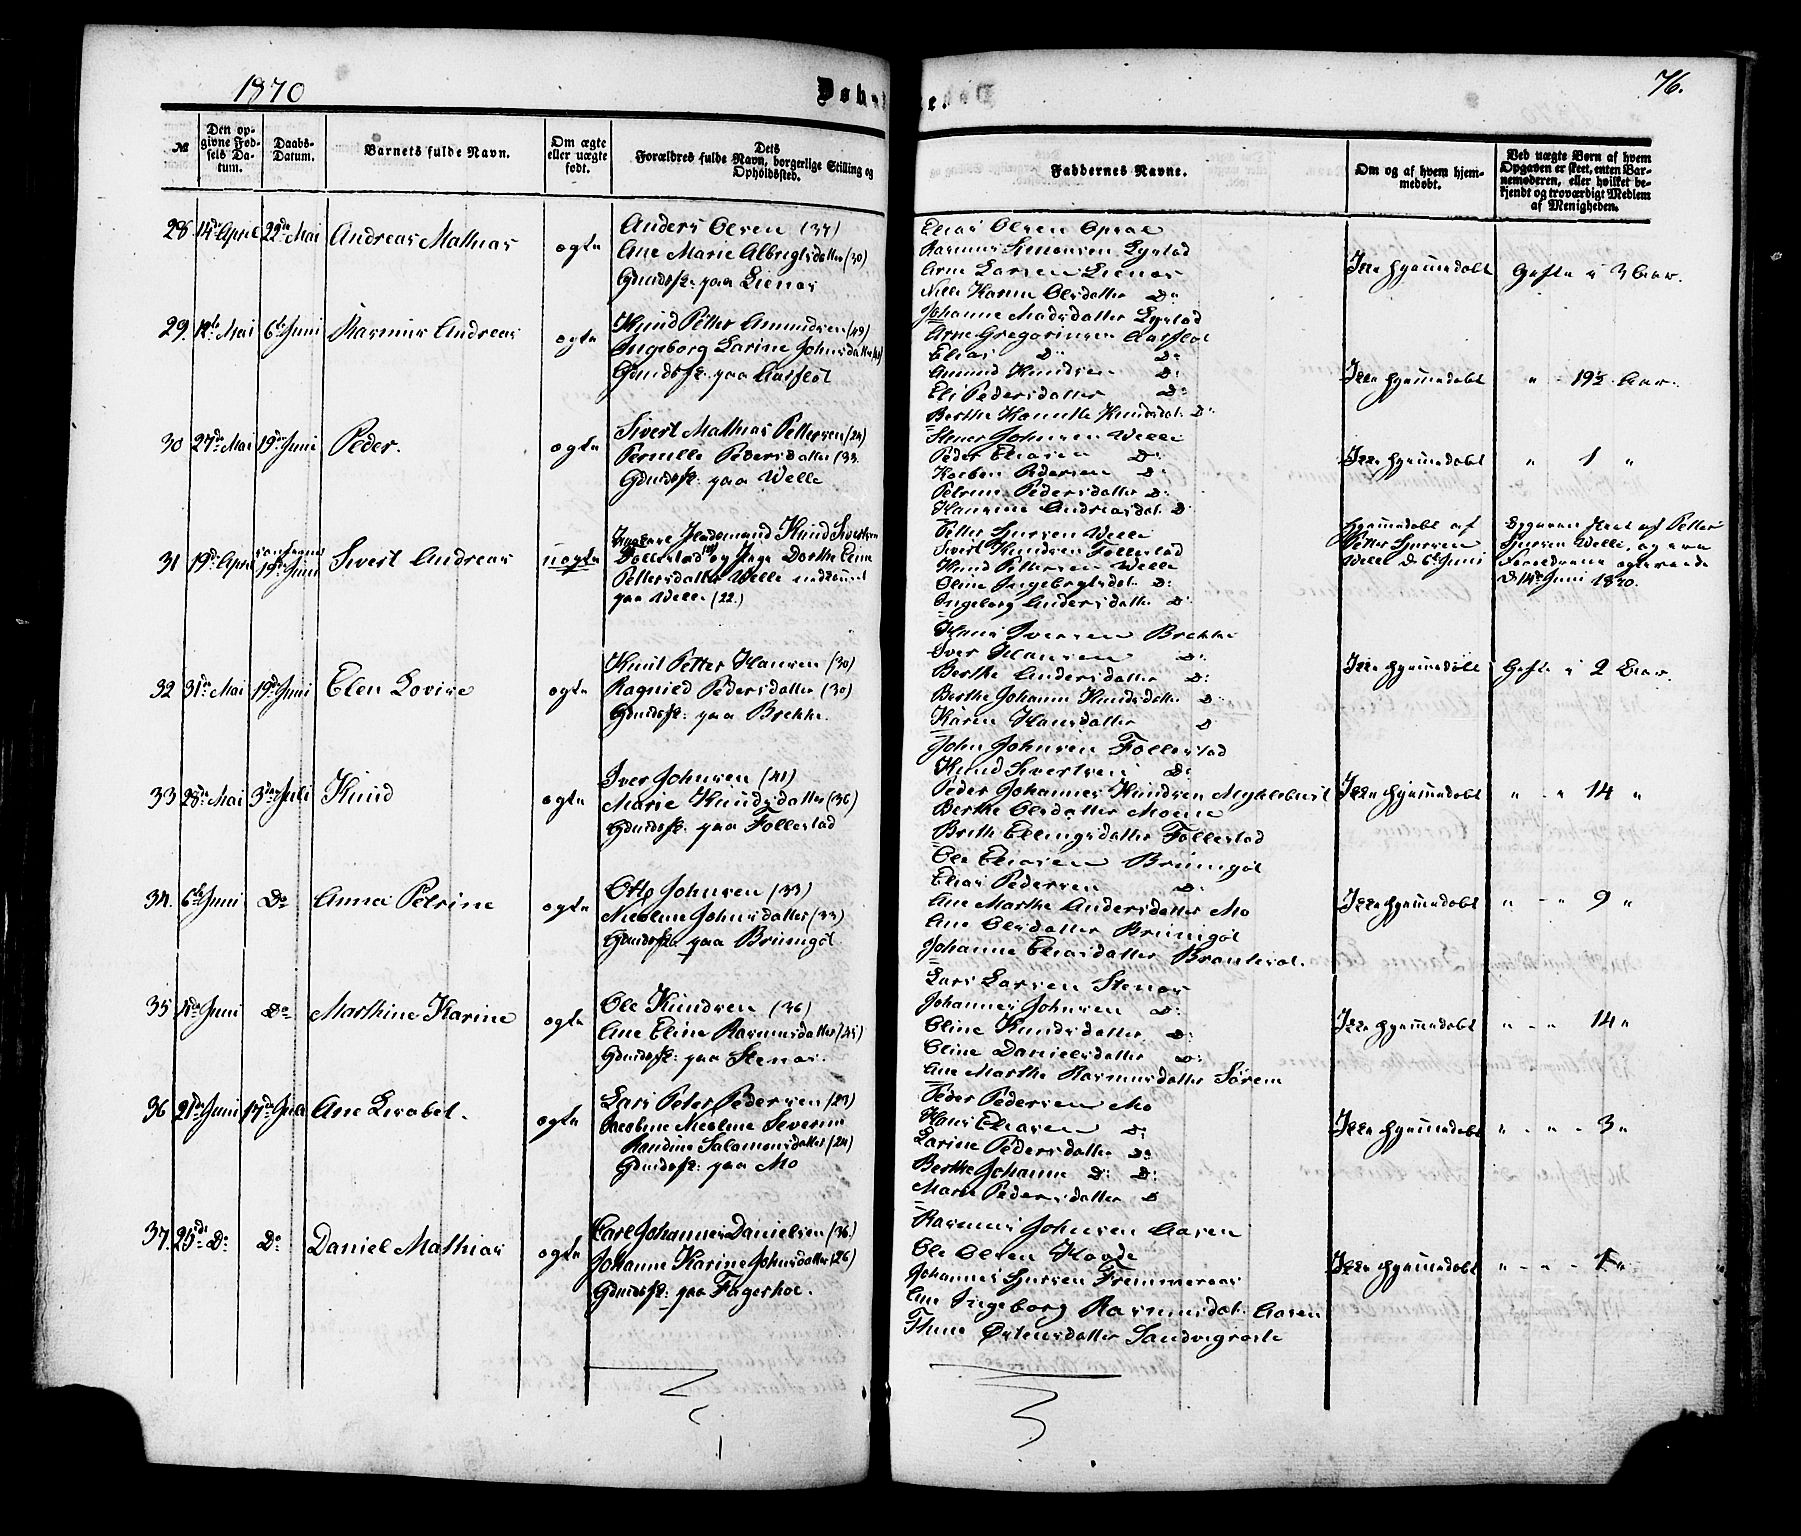 1870
76.
№
Den opgivne Fødsels Datum.
Daabs-Datum.
Barnets fulde Navn.
Om ægte eller uægte født.
Dets Forældres fulde Navn, borgerlige Stilling og Opholdssted.
Faddernes Navne.
Om og af hvem hjemmedøbt.
Ved uægte Børn af hvem Opgaven er skeet, enten Barnemoderen, eller hvilket bekjendt og troværdigt Medlem af Menigheden.
28 14de April 22de Mai Andreas Mathias ægte
Anders Olsen (37)
Ane Marie Albrigtsdatter (30)
Gbrudsf: paa Lienæs
Elias Olsen Opsal
Rasmus Simonsen Lystad
Arne Larsen Lienæs
Nille Karine Olsdatter Do
Johanne Madsdatter Lystad
Ikke hjemmedøbt
Gifte i 3 Aar.
29. 12te Mai 6te Juni Rasmus Andreas ægte
Knud Petter Amundsen (49)
Ingeborg Larine Johnsdatter
Gbrudsf: paa Aarflot
Arne Gregoriusen Aarflot
Elias Do Do
Amund Knudsen Do
Eli Pedersdatter Do
Berthe Hanntte Knudsdat. Do
Ikke hjemmedøbt
" - 19½ Aar.
30 27de Mai 19de Juni Peder. ægte
Sivert Mathias Pettersen (24)
Pernille Pedersdatter (33
Gbrudsf: paa Welle
Stener Johnsen Welle
Peder Eliasen Do
Korben Pedersen Do
Petrine Pedersdatter Do
Hansine Andreasdat. D
Ikke hjemmedøbt
" 1 "
31 19de Apr 19de Juni Sivert Andreas uægte
Ungkarl Knud Sivertsen
Follestad og Pige Dorthe Eline
Pettersdatter Welle
paa Welle (22.)
Petter Sjursen Welle
Sivert Knudsen Follestad
Knud Pettersen Welle
Oline Ingebrigtsdat. Do
Ingeborg Andersdatter D
Hjemmedøbt af
Petter Sjursen
Welle d 6te Juni
Opgaven skeet af Petter
Sjursen Welle, og ere
Forældrene
d 14de Juni 1870.
32 31te Mai 19de Juni Elen Lovise ægte
Knut Petter Hansen (30)
Ragnild Pedersdatter (30)
Gbrudsf: paa Brekke.
Hans Iversen Brekke
Iver Hansen Do
Berthe Andersdatter Do
Berthe Johanne Knudsdatter Do
Karen Hansdatter D
Ikke hjemmedøbt
Gifte i 2 Aar.
33 28de Mai 3die Juli Knud ægte
Iver Johnsen (41)
Marie Knudsdatter (36)
Gbrudsf: paa Follestad
John Johnsen Follestad
Knud Sivertsen Do
Peder Johannes Knudsen Myklebust
Berthe Olsdatter Moene
Brithe Ellingsdatter Follestad
Ikke hjemmedøbt
" - " 14 "
34. 6te Juni Do Anna Petrine ægte
Otto Johnsen (33)
Nicoline Johnsdatter (33)
Gbrudsf: paa Brungøt
Ole Eliasen Brungøt
Elias Pedersen Do
Ane Marthe Andersdatter Mo
Ane Olsdatter Brungøt
Johanne Eliasdatter
Ikke hjemmedøbt
" - " 9 "
35 Juni Do Marthine Karine ægte
Ole Knudsen (36)
Ane Eline Rasmusdatter (45)
Gbrudsf: paa Stenæs.
Lars Larsen Stenæs
Johannes Johnsen Do
Oline Knudsdatter Do
Eline Danielsdatter Do
Ane Marthe Rasmusdatter Sørem
Ikke hjemmedøbt
" - " 14 "
36 21de Juni 17de Juli Ane Lisabet. ægte
Lars Peter Pedersen (23)
Jacobine Nicoline Severine
Randine Salamonsdatter (24)
Gbrudsf: paa Mo
Peder Pedersen Mo
Hans Eliasen Do
Larine Pedersdatter Do
Berthe Johanne Do Do
Marie Pedersdatter D
Ikke hjemmedøbt
" - " - 3 "
37. 25de Do Do Daniel Mathias ægte
Carl Johannes Danielsen (36.)
Johanne Karine Johnsdatter (26)
Gbrudsf: paa Fagerhol.
Rasmus Johnsen Aasen
Ole Olsen Hovde
Johannes Sjursen Fremmeraas
Ane Ingeborg Rasmusdat. Aasen
Thine Østensdatter Sandvigreite
Ikke hjemmedøbt
" - " - 1 "